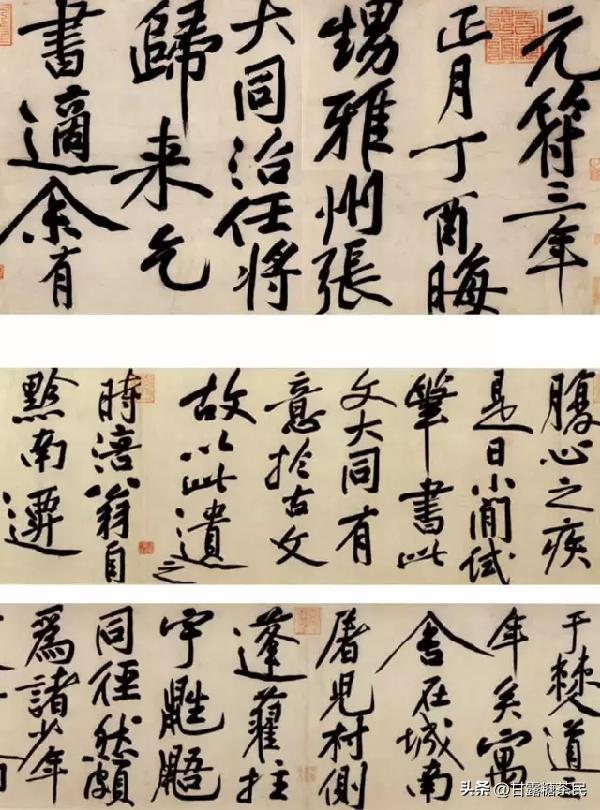 元符三年
正月丁酉晦
甥雅州張
大同治任將
歸来乞
書適余有
腹心之疾
是日小閒試
筆書此
文大同有
意於古文
故以此遺之
時涪翁自
黔南遷
于僰道三
年矣寓
舍在城南
屠兒村側
蓬藋拄
宇鼪鼯
同徑然頗
爲諸少年
头条 @甘露糖茶民